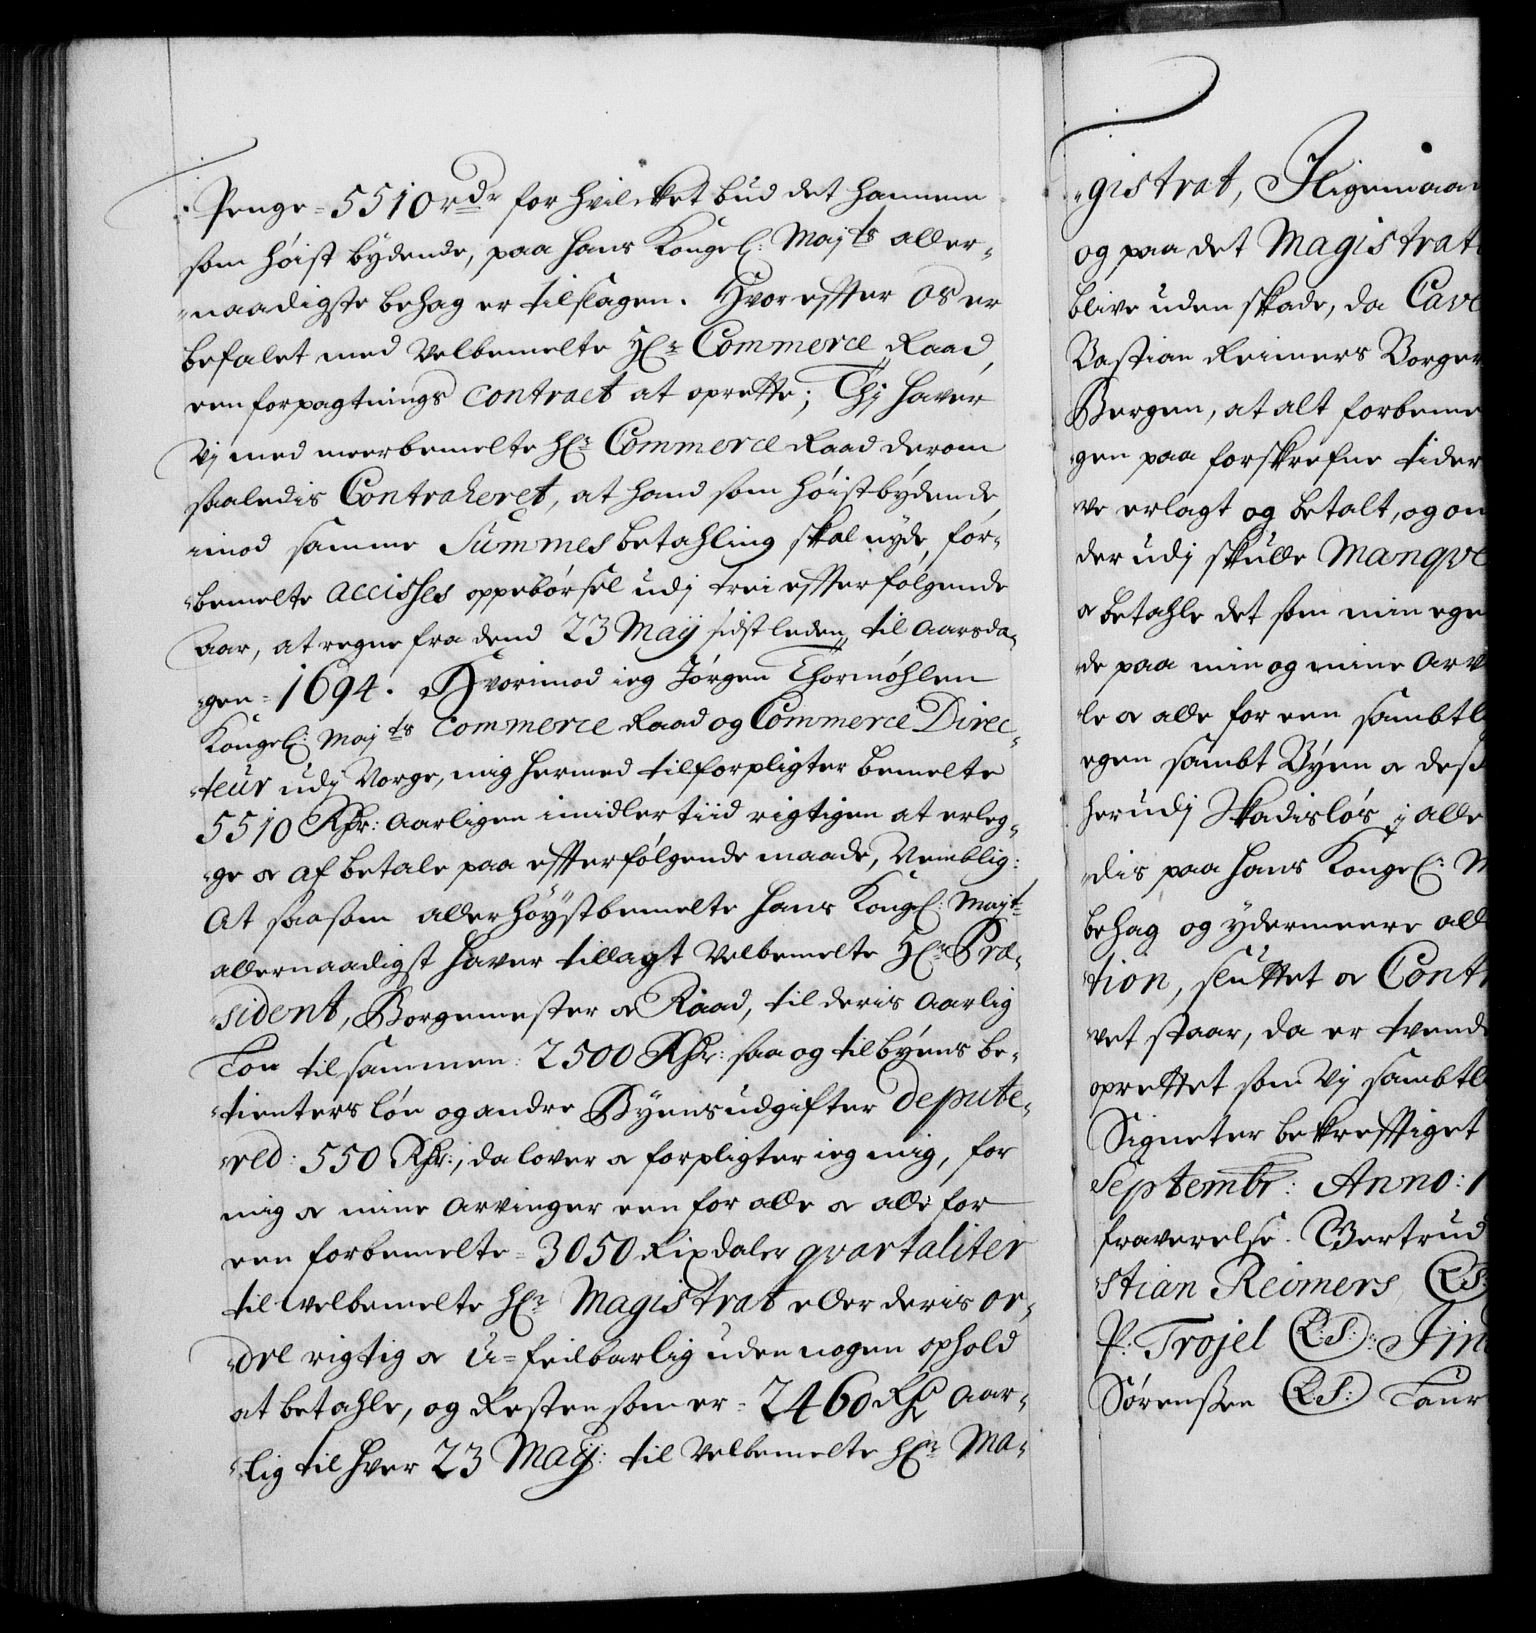 Penge = 5510 rdr for hvilcket bud det hannem
som høist bydende, paa hans Kongel: Majts aller-
naadigste behag er tilslagen. Hvoreffter os er
befalet med Velbemelte Hr: Commerce Raad,
een forpagtnings Contract at oprette; Thj haver
Vj med meerbemelte Hr: Commerce Raad derom
saaledis Contraheret, at hand som høistbydende,
imod samme Summes betahling skal nyde, for-
bemelte Accisses oppebørsel udj trei effterfølgende
Aar, at regne fra dend 23 Maij sidstleden, til Aarsda-
gen = 1694. Hvorimod ieg Jørgen Thormøhlen
Kongel: Majts Commerce Raad og Commerce Direc-
teur udj Norge, mig hermed tilforpligter bemelte
5510 Rdr: Aarligen imidlertiid rigtigen at erleg-
ge & af betale paa effterfølgende maade, Nemblig:
At saasom allerhøystbemelte hans Kongl: Mayt:
allernaadigst haver tillagt Velbemelte Hr: Præ-
sident, Borgemester & Raad, til deris Aarlig
Løn tilsammen: 2500 Rdr: saa og til byens be-
tienters løn og andre Byens udgifter depute-
red: 550 Rdr:, da lover & forpligter ieg mig, for
mig & mine Arvinger een for alle & alle for
een forbemelte = 3050 Rixdaler qvartaliter
til Velbemelte Hr: Magistrat eller deris or-
dre rigtig & u=feilbarlig uden nogen ophold
at betahle, og Resten som er = 2460 Rdr Aar-
lig til hver 23 Maij: til Velbemelte Hr: Ma-
gistrat, Jligemaa
og paa det Magistrat
blive uden skade, da Cave
Bastian Reimers Borger
Bergen, at alt forbeme
gen paa forskrefne tider
ve erlagt og betalt, og om
der udj skulle Manqve
& betahle det som min ege
de paa min og mine Arv
le & alle for een sambtl
egen sambt Byen & dess
herudj skadisløs j alle
dis paa hans Kongel: M
behag og ydermeere all
tion, sluttet & Contr
vet staar, da er tvende
oprettet som Vj sambtl
Signeter bekrefftiget
Septembr: Anno: 1
fraverelse. Gertrud
stian Reimers (L:S:
P: Trojel (L:S:)
Sørenssen (L:S:) Laur